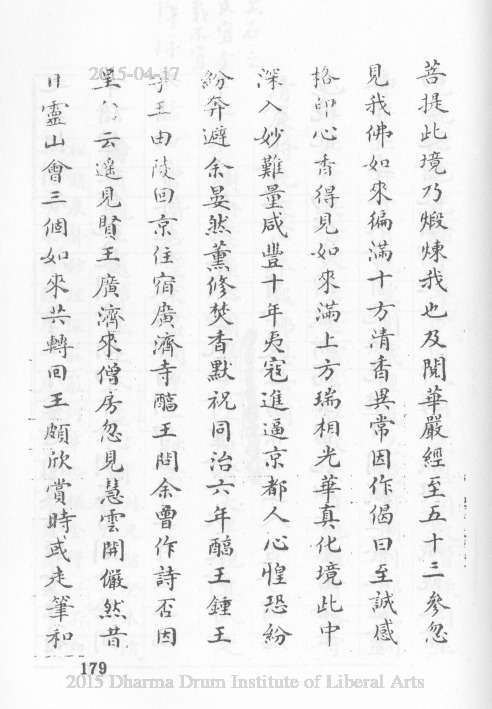 菩提此境乃煅煉我也及閱華嚴經至五十三參忽
見我佛如來徧滿十方清香異常因作偈曰至誠感
格印心香得見如來滿上方瑞相光華真化境此中
深入妙難量咸豐十年夷寇進逼京都人心惶恐紛
紛奔避余晏然薰修焚香默祝同治六年醕王鍾王
孚王由陵回京住宿廣濟寺醕王問余曾作詩否因
呈 云遥見賢王廣濟來僧房忽見慧雲開儼然昔
日靈山會三個如來共轉回王頗欣賞時或走筆和
179
2015-04-17
2015 Dharma Drum Institute of Liberal Arts